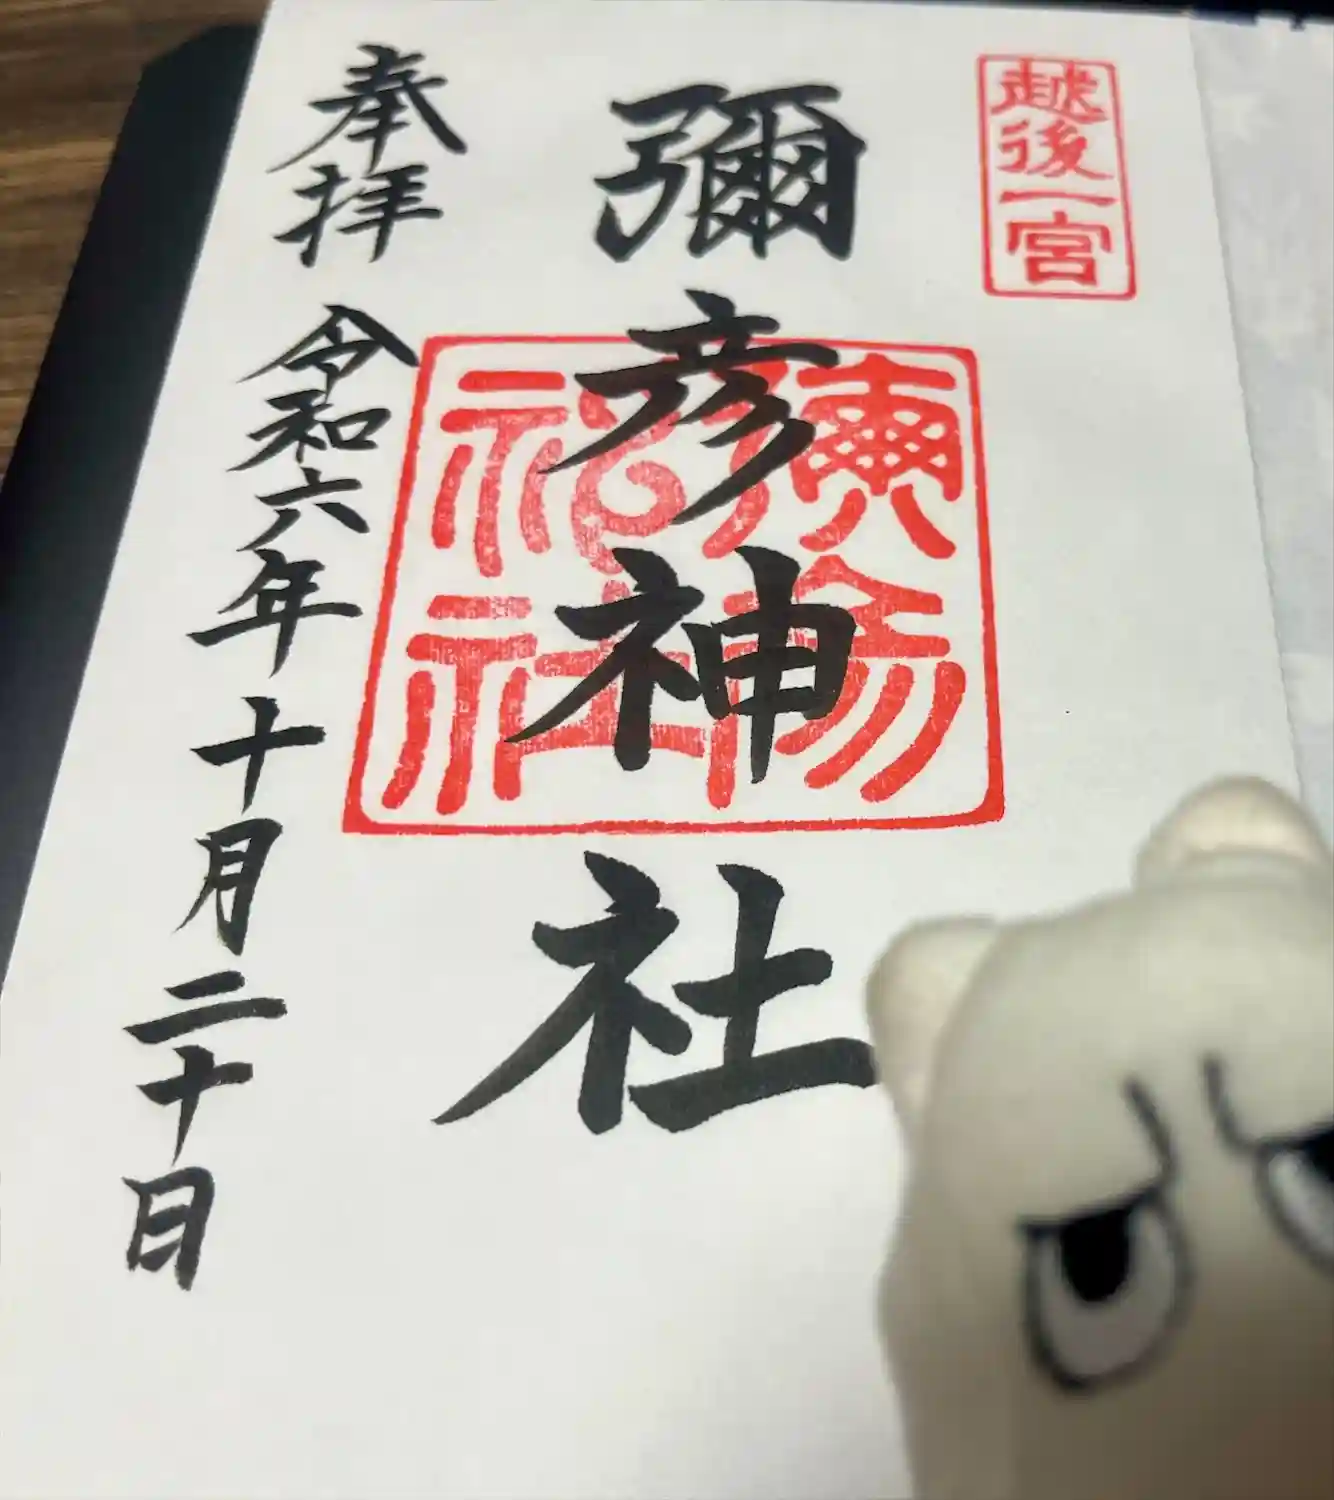 越後一宮
彌彦神社
彌彦神社
奉拝
令和六年十月二十日